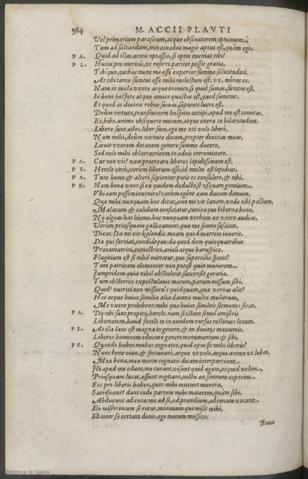 564 M. ACCII PLAVTI
Vel primarium parasitum, atque obsonatorem optumum.
Tum ad saltandum, non cinædus magis aptus est, quàm ego.
PA. Quid ad illas artes optassis, si optio eueniat tibi?
PL. Huius pro meritis, ut referri pariter possit gratia,
Tibi que, quibus nunc me esse experior summæ solicitudini.
At tibi tanto sumtui esse mihi molestum est. PE. morus es.
Nam in mala uxore atque inimico, si quid sumas, sumtus est,
In bono hospite atque amico quæstus est, quod sumitur,
Et quod in diuinis rebus sumas, sapienti lucro est.
Deûm virtute, est, te unde hospitio accipi apud me comitas.
Es, bibe, animo obsequere mecum, atque onera te hilaritudine.
Libera sunt ædes, liber sum ego: me uti volo liberè.
Nam mihi, deûm virtute dicam, propter diuitias meas,
Licuit uxorem dotatam genere summo ducere,
Sed nolo mihi oblatratricem in ædeis intromittere.
PA. Cur non vis? nam procreare liberos lepidissimum est.
PE. Hercle verò, verùm liberum esse, id multo est lepidius.
PA. Tute homo &amp; alteri sapienter potis es consulere, &amp; tibi.
PE. Nam bona vxor si ea deducta est usquam gentium,
Vbi eam possim inuenire? verùm egóne eam ducam domum,
Quæ mihi nunquam hoc dicat, eme mi vir lanam, unde tibi pallium
Malacum &amp; calidum conficiatur, tunicæque hibernæ bonæ,
Ne algeas hac hieme. hoc nunquam verbum ex vxore audias.
Verùm priusquam galli cantent, quæ me somno suscitet,
Dicat: Da mi vir kalendis meam quod matrem iuuerit.
Da qui farciat, condiat que: da quod dem quinquatribus
Præcantatrici, coniectrici, ariolæ atque haruspicæ.
Flagitium est si nihil mittetur, quæ supercilio spicit?
Tum patricam clementer non potest quin munerem.
Iampridem quia nihil abstulerit, succenset geraria.
Tum obstetrix expostulauit mecum, parum missum sibi.
Quid? nutrici non missurus quidquam, quæ vernas alit?
Hæc atque huius similia alia damna multa mulierum,
Me vxore prohibent, mihi quæ huius similes sermones serat.
PA. Dij tibi sunt propitij, hercle. nam si istam semel amiseris
Libertatem, haud facile te in eundem rursus restitues locum.
PL. At illa laus est, magno in genere, &amp; in diuitijs maxumis,
Liberos hominem educare, generi monumentum &amp; sibi.
PE. Quando habeo multos cognatos, quid opus sit mihi liberis?
Nunc bene viuo, &amp; fortunatè, atque ut volo, atque animo ut lubet.
Mea bona, mea morte cognatis dicam interpartiant.
Hi apud me edunt, me curant, visunt quid agam, ecquid velim.
Priusquam lucet, assunt, rogitant, noctu ut somnum ceperim.
Eos pro liberis habeo, quin mihi mittunt munera.
Sacrificant? dant inde partem mihi maiorem, quàm sibi.
Abducunt ad exta: me ad se, ad prandium, ad cœnam vocant.
Ille miserrimum se retur, minimum qui misit mihi.
Illi inter se certant donis, ego mecum mussito:
Bona